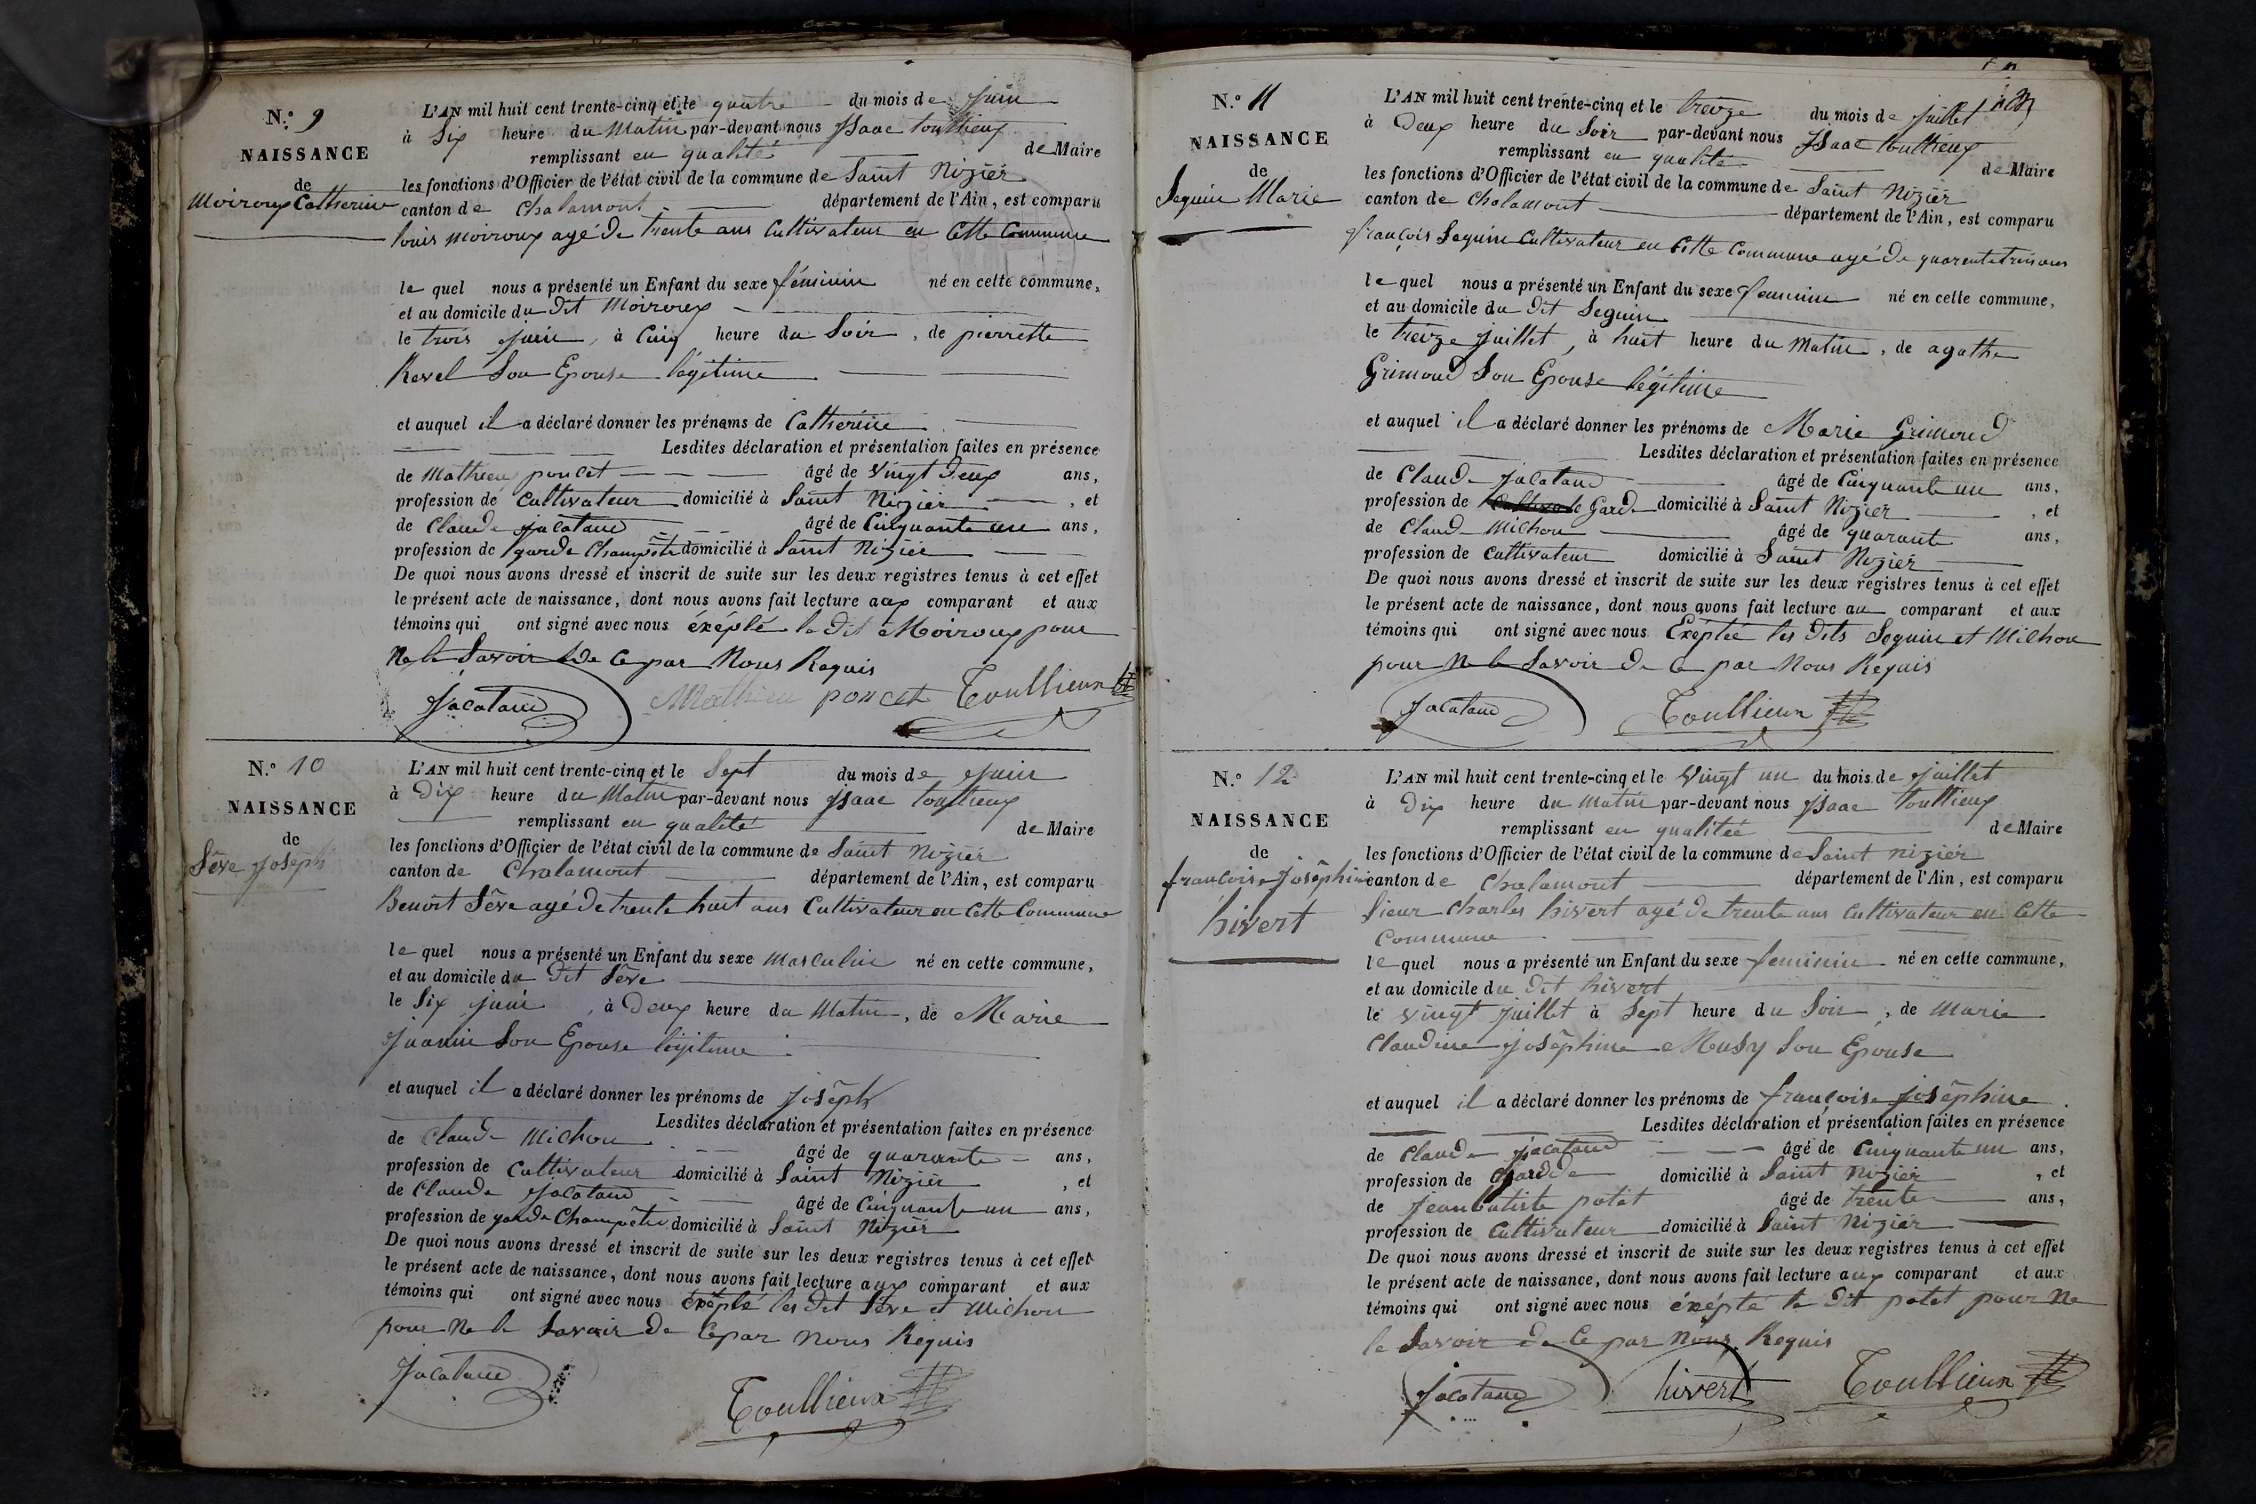 N.o 9
NAISSANCE
de
Moiroux Catherine
L'AN mil huit cent trente-cinq et le quatre du mois de juin
à Six heure du Matin par-devant nous Isaac toullieux
remplissant en qualité de Maire
les fonctions d'Officier de l'état civil de la commune de Saint Nizier
canton de Chalamont département de l'Ain, est comparu
louis Moiroux agé de trente ans Cultivateur en Cette Commune
le quel nous a présenté un Enfant du sexe féminin né en cette commune,
et au domicile du dit Moiroux
le trois juin, à Cinq heure du Soir, de pierrette
Revel Son Epouse légitime
et auquel il a déclaré donner les prénoms de Catherine
Lesdites déclaration et présentation faites en présence
de Mathieu poncet âgé de Vingt deux ans,
profession de Cultivateur domicilié à Saint Nizier, et
de Claude jacataud âgé de Cinquante un ans,
profession de garde Champêtre domicilié à Saint Nizier
De quoi nous avons dressé et inscrit de suite sur les deux registres tenus à cet effet
le présent acte de naissance, dont nous avons fait lecture aux comparant et aux
témoins qui ont signé avec nous éxéplé le dit Moiroux pour
Ne le Savoir de Ce par Nous Requis
Jacataud Mathieu poncet Toullieux
N.o 10
NAISSANCE
de
Sève joseph
L'AN mil huit cent trente-cinq et le Sept du mois de juin
à Dix heure du Matin par-devant nous Isaac toullieux
remplissant en qualité de Maire
les fonctions d'Officier de l'état civil de la commune de Saint Nizier
canton de Chalamont département de l'Ain, est comparu
Benoit Sève agé de trente huit ans Cultivateur en Cette Commune
le quel nous a présenté un Enfant du sexe Masculin né en cette commune,
et au domicile du dit Sève
le Six juin, à Deux heure du Matin, de Marie
Juanin Son Epouse légitime
et auquel il a déclaré donner les prénoms de joseph
Lesdites déclaration et présentation faites en présence
de Claude Michon âgé de quarante ans,
profession de Cultivateur domicilié à Saint Nizier, et
de Claude jacataud âgé de Cinquante un ans,
profession de garde Champêtre domicilié à Saint Nizier
De quoi nous avons dressé et inscrit de suite sur les deux registres tenus à cet effet
le présent acte de naissance, dont nous avons fait lecture aux comparant et aux
témoins qui ont signé avec nous éxéplé les dit Sève et Michon
pour Ne le Savoir de Ce par Nous Requis
Jacataud Toullieux
N.o 11
NAISSANCE
de
Seguin Marie
L'AN mil huit cent trente-cinq et le treize du mois de juillet
à Deux heure du Soir par-devant nous Isaac toullieux
remplissant en qualité de Maire
les fonctions d'Officier de l'état civil de la commune de Saint Nizier
canton de Chalamont département de l'Ain, est comparu
françois Seguin Cultivateur en Cette Commune agé de quarente trois ans
le quel nous a présenté un Enfant du sexe feminin né en cette commune,
et au domicile du dit Seguin
le treize juillet, à huit heure du Matin, de agathe
Grimoud Son Epouse légitime
et auquel il a déclaré donner les prénoms de Marie Grimoud
Lesdites déclaration et présentation faites en présence
de Claude jacataud âgé de Cinquante un ans,
profession de Garde domicilié à Saint Nizier, et
de Claude Michon âgé de quarante ans,
profession de Cultivateur domicilié à Saint Nizier
De quoi nous avons dressé et inscrit de suite sur les deux registres tenus à cet effet
le présent acte de naissance, dont nous avons fait lecture au comparant et aux
témoins qui ont signé avec nous Exéptée les dits Seguin et Michon
pour Ne le Savoir de Ce par Nous Requis
Jacataud Toullieux
N.o 12
NAISSANCE
de
françoise Josêphine
hivert
L'AN mil huit cent trente-cinq et le Vingt un du mois de juillet
à Dix heure du matin par-devant nous Isaac toullieux
remplissant en qualitée de Maire
les fonctions d'Officier de l'état civil de la commune de Saint nizier
canton de Chalamont département de l'Ain, est comparu
Sieur Charles hivert agé de trente ans Cultivateur en Cette
Commune
le quel nous a présenté un Enfant du sexe feminin né en cette commune,
et au domicile du dit hivert
le Vingt juillet à Sept heure du Soir, de Marie
Claudine josêphine Musy Son Epouse
et auquel il a déclaré donner les prénoms de françoise josêphine
Lesdites déclaration et présentation faites en présence
de Claude jacataud âgé de Cinquante un ans,
profession de Garde domicilié à Saint Nizier, et
de Jean batiste potet âgé de trente ans,
profession de Cultivateur domicilié à Saint Nizier
De quoi nous avons dressé et inscrit de suite sur les deux registres tenus à cet effet
le présent acte de naissance, dont nous avons fait lecture aux comparant et aux
témoins qui ont signé avec nous éxépté le dit potet pour Ne
le Savoir de Ce par Nous Requis
Jacataud hivert Toullieux